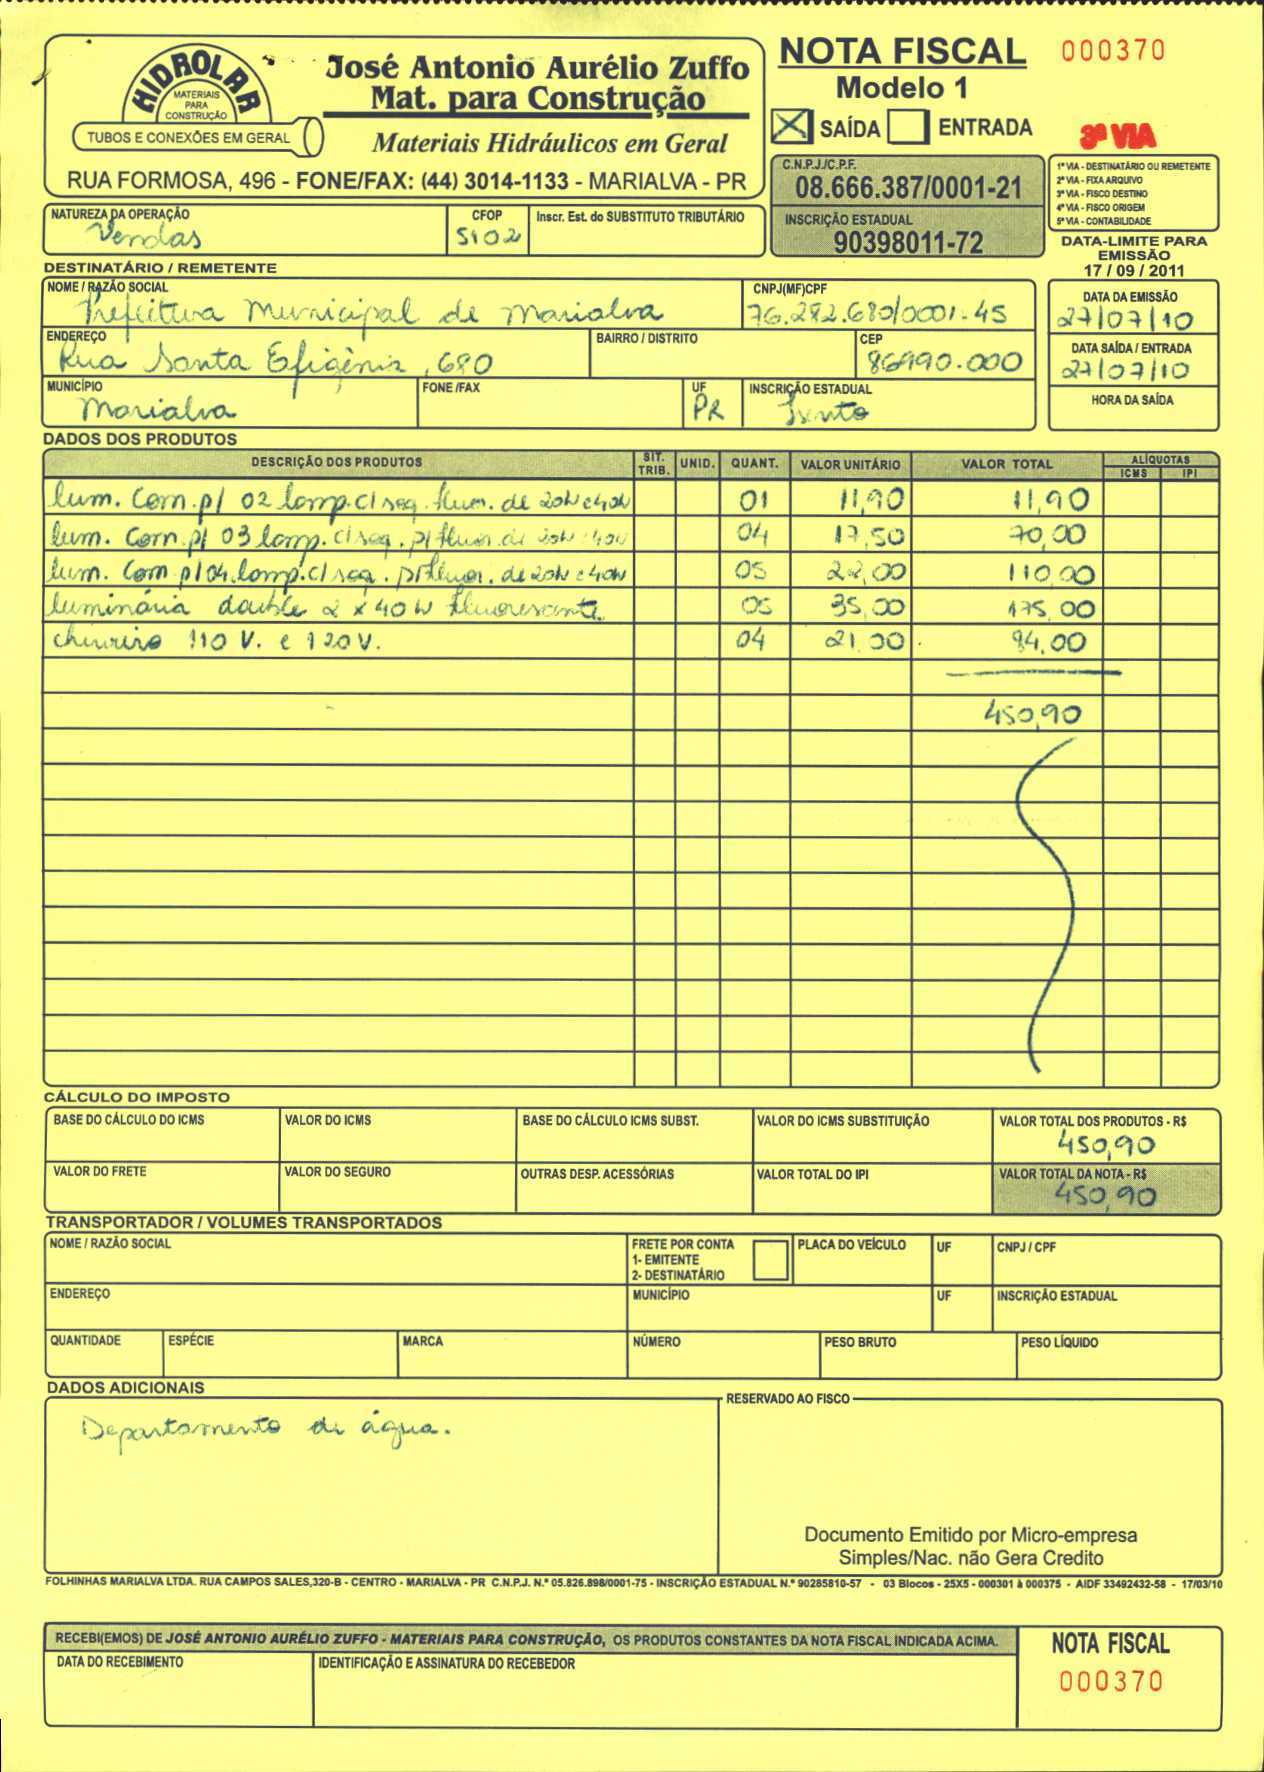 HIDROLAR
MATERIAIS
PARA
CONSTRUÇÃO
TUBOS E CONEXÕES EM GERAL
José Antonio Aurélio Zuffo
Mat. para Construção
Materiais Hidráulicos em Geral
RUA FORMOSA, 496 - FONE/FAX: (44) 3014-1133 - MARIALVA - PR
NOTA FISCAL 000370
Modelo 1
X SAÍDA ENTRADA
3ª VIA
C.N.P.J./C.P.F.
08.666.387/0001-21
INSCRIÇÃO ESTADUAL
90398011-72
1ª VIA - DESTINATÁRIO OU REMETENTE
2ª VIA - FIXA ARQUIVO
3ª VIA - FISCO DESTINO
4ª VIA - FISCO ORIGEM
5ª VIA - CONTABILIDADE
DATA-LIMITE PARA
EMISSÃO
17 / 09 / 2011
NATUREZA DA OPERAÇÃO CFOP Inscr. Est. do SUBSTITUTO TRIBUTÁRIO
Vendas 5102
DESTINATÁRIO / REMETENTE
NOME / RAZÃO SOCIAL CNPJ(MF)CPF DATA DA EMISSÃO
Prefeitura Municipal de Marialva 76.282.680/0001-45 27/07/10
ENDEREÇO BAIRRO / DISTRITO CEP DATA SAÍDA / ENTRADA
Rua Santa Efigênia, 680 86990.000 27/07/10
MUNICÍPIO FONE /FAX UF INSCRIÇÃO ESTADUAL HORA DA SAÍDA
Marialva PR Isento
DADOS DOS PRODUTOS
DESCRIÇÃO DOS PRODUTOS SIT. TRIB. UNID. QUANT. VALOR UNITÁRIO VALOR TOTAL ALÍQUOTAS ICMS IPI
lum. Com. p/ 02 lamp. c/ seq. fluor. de 20W e 40W 01 11,90 11,90
lum. Com. p/ 03 lamp. c/ seq. p/ fluor. de 20W e 40W 04 17,50 70,00
lum. Com p/ 04 lamp. c/ seq. p/ fluor. de 20W e 40W 05 22,00 110,00
luminária double 2 x 40 W fluorescente. 05 35,00 175,00
chuveiro 110 V. e 120 V. 04 21,00 84,00
450,90
CÁLCULO DO IMPOSTO
BASE DO CÁLCULO DO ICMS VALOR DO ICMS BASE DO CÁLCULO ICMS SUBST. VALOR DO ICMS SUBSTITUIÇÃO VALOR TOTAL DOS PRODUTOS - R$
450,90
VALOR DO FRETE VALOR DO SEGURO OUTRAS DESP. ACESSÓRIAS VALOR TOTAL DO IPI VALOR TOTAL DA NOTA - R$
450,90
TRANSPORTADOR / VOLUMES TRANSPORTADOS
NOME / RAZÃO SOCIAL FRETE POR CONTA PLACA DO VEÍCULO UF CNPJ / CPF
1- EMITENTE
2- DESTINATÁRIO
ENDEREÇO MUNICÍPIO UF INSCRIÇÃO ESTADUAL
QUANTIDADE ESPÉCIE MARCA NÚMERO PESO BRUTO PESO LÍQUIDO
DADOS ADICIONAIS
RESERVADO AO FISCO
Departamento de água.
Documento Emitido por Micro-empresa
Simples/Nac. não Gera Credito
FOLHINHAS MARIALVA LTDA. RUA CAMPOS SALES,320-B - CENTRO - MARIALVA - PR C.N.P.J. N.º 05.826.898/0001-75 - INSCRIÇÃO ESTADUAL N.º 90285810-57 - 03 Blocos - 25X5 - 000301 à 000375 - AIDF 33492432-58 - 17/03/10
RECEBI(EMOS) DE JOSÉ ANTONIO AURÉLIO ZUFFO - MATERIAIS PARA CONSTRUÇÃO, OS PRODUTOS CONSTANTES DA NOTA FISCAL INDICADA ACIMA.
DATA DO RECEBIMENTO IDENTIFICAÇÃO E ASSINATURA DO RECEBEDOR
NOTA FISCAL
000370